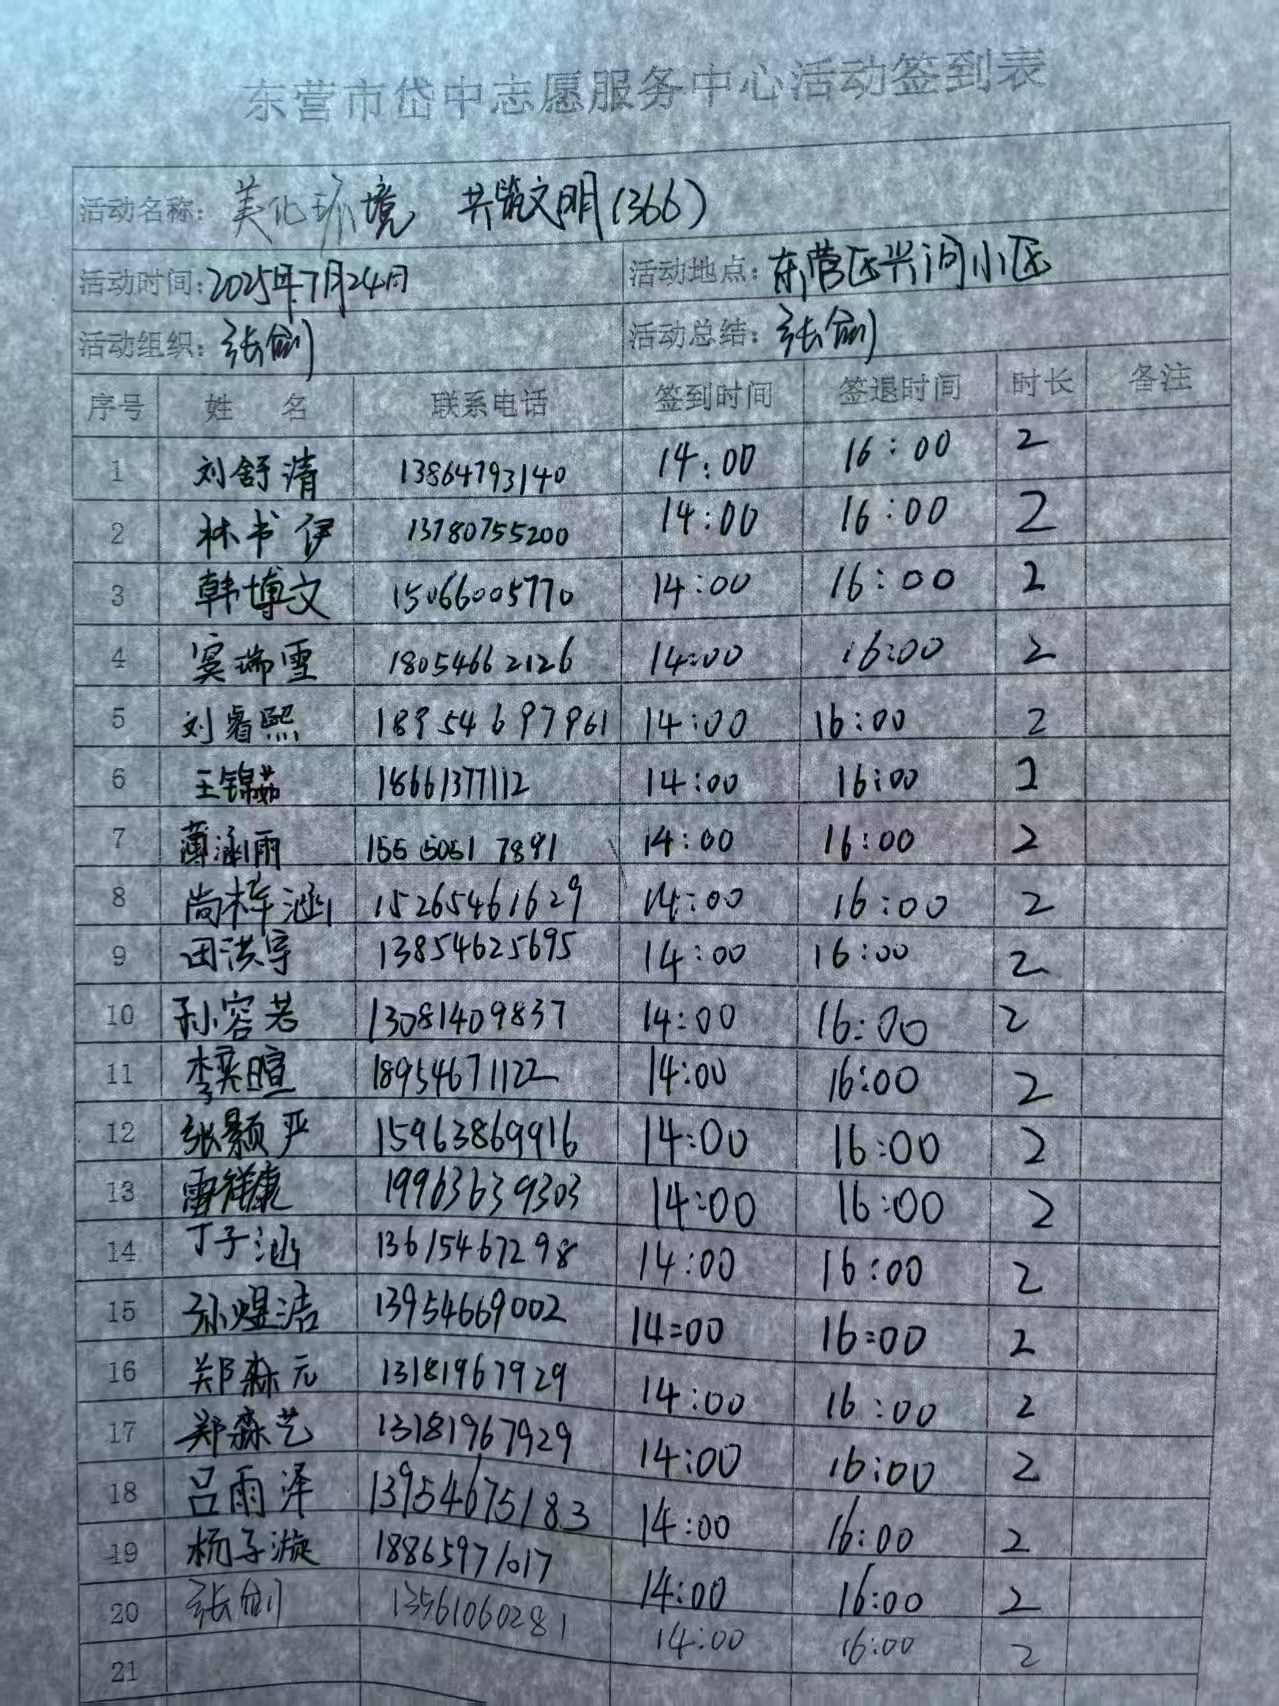 东营市岱中志愿服务中心活动签到表
活动名称: 美化环境 共筑文明(366)
活动时间: 2025年7月24日 活动地点: 东营区兴河小区
活动组织: 张剑 活动总结: 张剑
序号 姓 名 联系电话 签到时间 签退时间 时长 备注
1 刘舒清 13864793140 14:00 16:00 2
2 林书伊 13780755200 14:00 16:00 2
3 韩博文 15066005770 14:00 16:00 2
4 窦瑞雪 18054662126 14:00 16:00 2
5 刘睿熙 18954697961 14:00 16:00 2
6 王锦茹 18661377112 14:00 16:00 2
7 薄涵雨 15550517891 14:00 16:00 2
8 尚梓涵 15265461629 14:00 16:00 2
9 田洪宇 13854625695 14:00 16:00 2
10 孙容若 13081409837 14:00 16:00 2
11 李奕暄 18954671122 14:00 16:00 2
12 张颢严 15963869916 14:00 16:00 2
13 雷祥康 19963639303 14:00 16:00 2
14 丁子涵 13615467298 14:00 16:00 2
15 孙煜洁 13954669002 14:00 16:00 2
16 郑森元 13181967929 14:00 16:00 2
17 郑森艺 13181967929 14:00 16:00 2
18 吕雨泽 13954675183 14:00 16:00 2
19 杨子漩 18865971017 14:00 16:00 2
20 张剑 13561060281 14:00 16:00 2
21